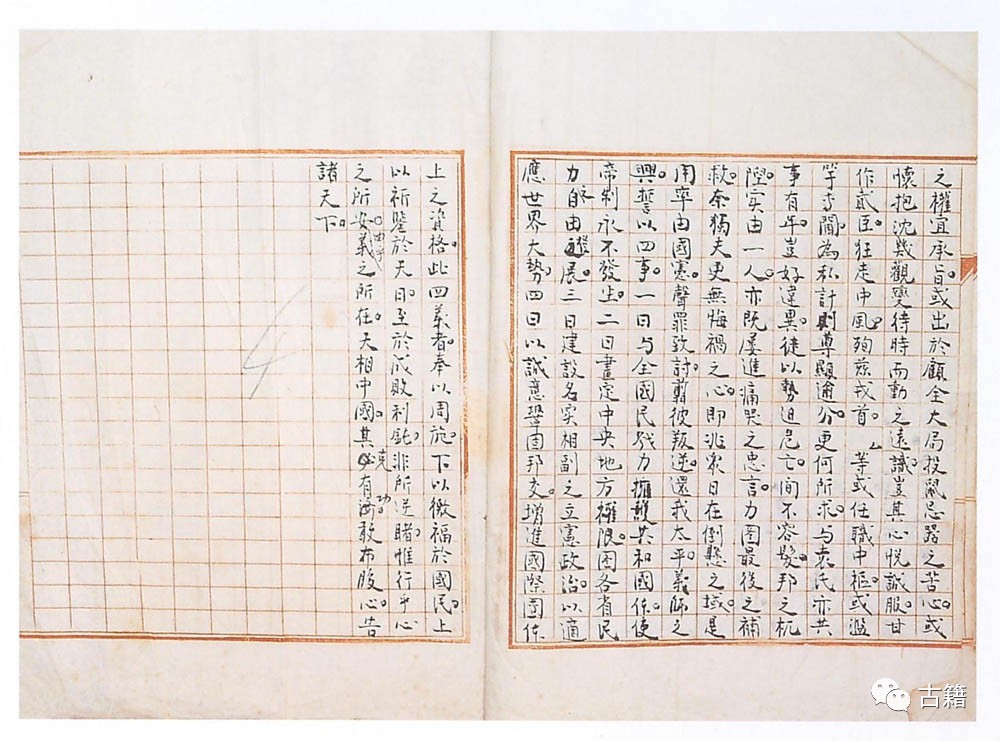 之權宜承旨或出於顧全大局投鼠忌器之苦心。或
懷抱沈幾觀變待時而動之遠識。豈其心悅誠服。甘
作貳臣。狂走中風殉茲戎首。 等或任職中樞。或濫
竽專閫。為私計則尊顯逾分。更何所求。与袁氏亦共
事有年。豈好違異。徒以勢迫危亡。間不容髮。邦之杌
隉。实由一人。亦既屢進痛哭之忠言。力圖最後之補
救。奈獨夫更無悔禍之心。即兆衆日在倒懸之域。是
用率由國憲。聲罪致討。翦彼叛逆。還我太平。義師之
興。誓以四事。一曰与全國民戮力擁護共和國体。使
帝制永不發生。二曰畫定中央地方權限。图各省民
力自由發展。三曰建設名实相副之立憲政治。以適
應世界大勢。四曰以誠意鞏固邦交。增進國際團体
上之資格。此四義者。奉以周旋。下以徼福於國民。上
以祈鑒於天日。至於成敗利鈍。非所逆睹。惟行乎心
之所安。由乎義之所在。天相中國。其克有濟。敢布腹心。告
諸天下。
古籍